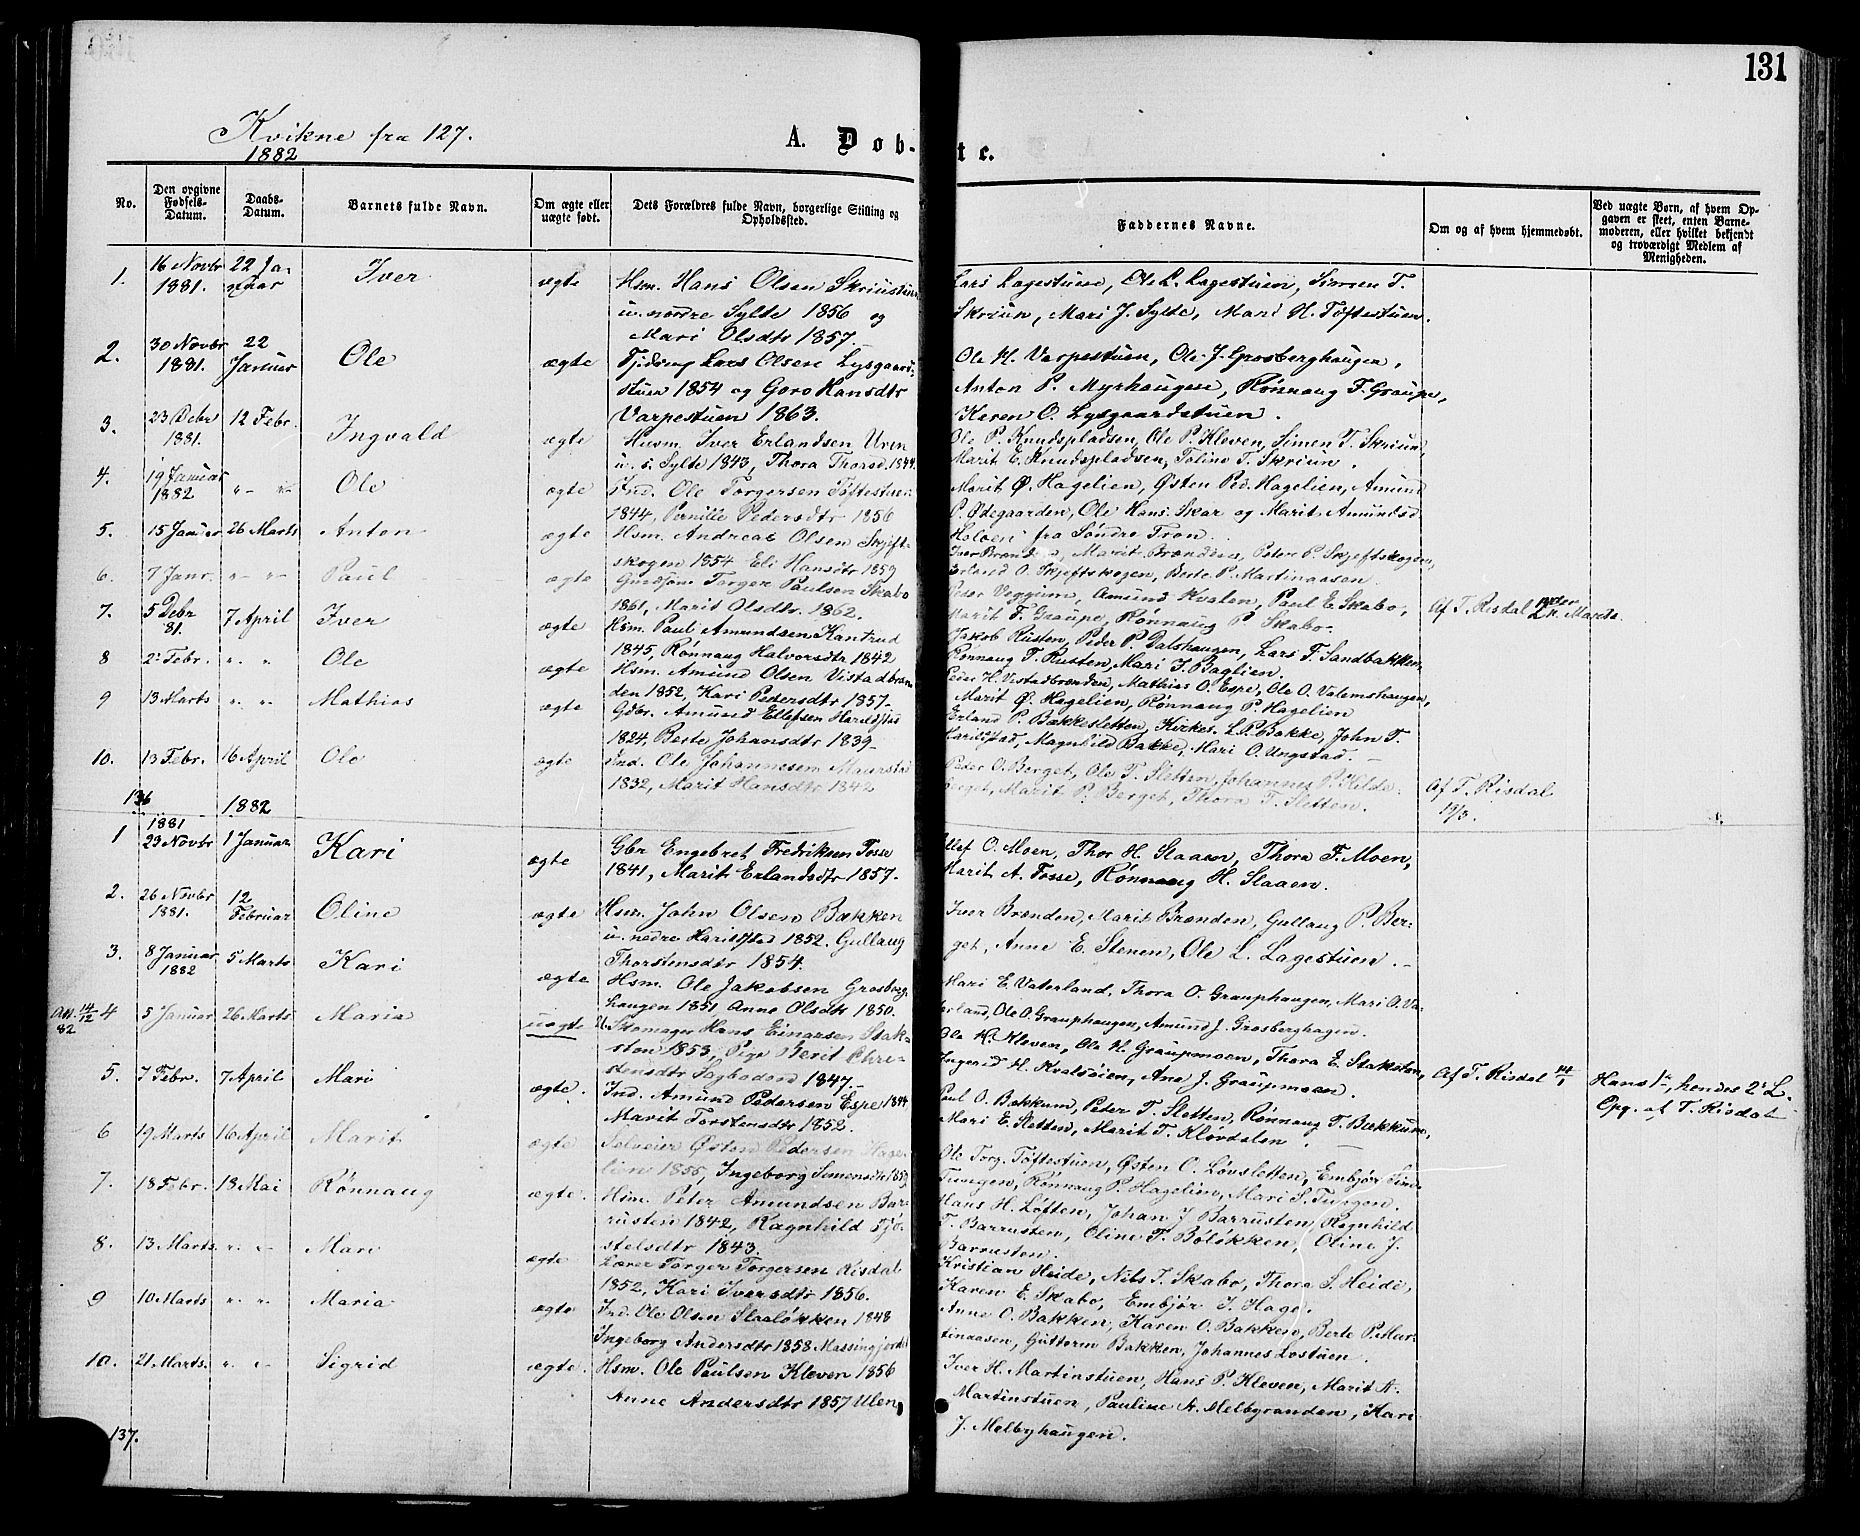 131
Kvikne fra 127.
1882
A. Døb-
te.
No.
Den opgivne Fødsels-Datum.
Daabs-Datum.
Barnets fulde Navn.
Om ægte eller uægte født.
Dets Forældres fulde Navn, borgerlige Stilling og Opholdssted.
Faddernes Navne.
Om og af hvem hjemmedøbt.
Ved uægte Børn, af hvem Op-
gaven er skeet, enten Barne-
moderen, eller hvilket bekjendt
og troværdigt Medlem af
Menigheden.
1. 16 Novbr 1881. 22 Januar Iver ægte
Hsm. Hans Olsen Skriustuen
u. nordre Sylte 1856 og
Mari Olsdtr 1857.
Lars Lagestuen, Ole L. Lagestuen, Simen T.
Skriun, Mari J. Sylte, Mari H. Tøftestuen.
2. 30 Novbr 1881. 22 Januar Ole ægte
Tjdreng Lars Olsen Lysgaard-
stuen 1854 og Goro Hansdtr
Varpestuen 1863.
Ole H. Varpestuen, Ole J. Grosberghaugen,
Anton P. Myrhaugen, Rønnaug F. Graupe,
Karen O. Lysgaardstuen.
3. 23 Debr 1881. 12 Febr. Ingvald ægte
Husm. Iver Erlandsen Uren
u. s. Sylte 1843, Thora Thorsd. 1844.
Ole P. Knudspladsen, Ole P. Kleven, Simen T. Skriun,
Marit E. Knudspladsen, Toline T. Skriun.
4. 19 Januar 1882 " " Ole ægte
Ind. Ole Torgersen Tøftestuen
1844, Pernille Pedersdtr 1856
Marit Ø. Hagelien, Østen Ped. Hagelien, Amund
P. Ødegaarden, Ole Hans. Skar og Marit Amundsd
Holøen fra Søndre Fron.
5. 15 Januar 26 Marts Anton ægte
Hsm. Andreas Olsen Skjeft-
skogen 1854 Eli Hansdtr 1859
Iver Brænden, Marit Brænden, Peter P. Skjeftskogen,
Erland O. Skjeftskogen, Berte P. Martinaasen.
6. 7 Janr. " " Paul ægte
Gmdsøn Torger Paulsen Skabo
1861, Marit Olsdtr. 1862.
Peder Veggum, Amund Kvalen, Paul E. Skabo,
Marit F. Graupe, Rønnaug P. Skabo.
7. 5 Debr 81. 7 April Iver ægte
Hsm. Paul Amundsen Kantrud
1845, Rønnaug Halvorsdtr 1842
Jakob Rusten, Peder P. Dalshaugen, Lars F. Sandbakken,
Rønnaug T. Rusten, Mari J. Baglien.
Af T. Risdal
8 2 Febr. " " Ole ægte
Hsm. Amund Olsen Vistadbræn
den 1852, Kari Pedersdtr 1857.
Peder H. Vistadbrænden, Mathias O. Espe, Ole O. Valemshaugen,
Marit Ø. Hagelien, Rønnaug P. Hagelien
9 13 Marts " " Mathias ægte
Gdbr. Amund Ellefsen Harildstad
1824, Berte Johansdtr 1839.
Erland P. Bakkesletten, Kirkes. L. P. Bakke, John T.
Harildstad, Magnhild Bakke, Mari O. Ungstad.
10. 13 Febr. 16 April Ole ægte
Ind. Ole Johannesen Maurstad
1832, Marit Hansdtr 1842
Peder O. Berget, Ole T. Sletten, Johannes P. Hilde-
berget, Marit P. Berget, Thora T. Sletten.
Af T. Risdal
19/3.
136
1882
1 1881 23 Novbr 1 Januar Kari ægte
Gbr Engebret Fredriksen Fosse
1841, Marit Erlandsdtr 1857.
Ellef O. Moen, Thor H. Slaaen, Thora F. Moen,
Marit A. Fosse, Rønnaug H. Slaaen.
2. 26 Novbr 1881. 12 Februar Oline ægte
Hsm. John Olsen Bakken
u. nedre Harildstad 1852. Gullaug
Thorstensdtr 1854.
Iver Brænden, Marit Brænden, Gullaug P. Ber-
get, Anne E. Stenen, Ole L. Lagestuen.
3. 8 Januar 1882 5 Marts Kari ægte
Hsm. Ole Jakobsen Grosberg-
haugen 1851 Anne Olsdtr 1850.
Mari E. Vaterland, Thora O. Grauphaugen, Mari O. Va-
terland, Ole O. Grauphaugen, Amund J. Grosberghagen.
14/12 82
4 5 Januar 26 Marts Maria uægte
Skomager Hans Einarsen Stak-
ston 1853, Pige Berit Chri-
stensdtr 1847.
Ole K. Kleven, Ole H. Graupmoen, Thora E. Stakston,
Ingerid H. Kvalsøien, Ane J. Graupmoen.
Af T. Risdal 14/1
Hans 1ste, hendes 2det L.
Opg. af T. Risdal
5. 7 Febr. 7 April Mari ægte.
Ind. Amund Pedersen Espe 1844
Marit Torstensdtr 1852.
Paul O. Bakkum, Peter T. Sletten, Rønnaug T. Bækkum,
Mari E. Sletten, Marit T. Kløvdalen.
6 19 Marts 16 April Marit ægte
Selveier Østen Pedersen Hage-
lien 1855, Ingeborg Simensdtr
Ole Torg. Tøftestuen, Østen O. Løvsletten, Embjør Sim.
Tungen, Rønnaug P. Hagelien, Mari S. Tungen.
7. 18 Febr. 18 Mai Rønnaug ægte.
Hsm. Peter Amundsen Bar-
rusten 1842, Ragnhild Tjø-
stelsdtr 1843.
Hans H. Løften, Johan J Barrusten, Ragnhild
T. Barrusten, Oline T. Bøløkken, Oline J.
Barrusten.
8. 13 Marts " " Mari ægte
Lærer Torger Torgersen Risdal
1852, Kari Iversdtr 1856.
Kristian Heide, Nils T. Skabo, Thora S. Heide,
Karen E. Skabo, Embjør J. Hage.
9 10 Marts " " Maria ægte
Ind. Ole Olsen Slaaløkken 1848
Ingeborg Andersdtr 1858 Massingjordet
Anne O. Bakken, Karen O. Bakken, Berte P. Mar-
tinaasen, Guttorm Bakken, Johannes Løstuen.
10. 21 Marts. " " Sigrid ægte.
Hsm. Ole Paulsen Kleven 1856
Anne Andersdtr 1857 Ulen
Iver H. Martinstuen, Hans P. Kleven, Marit A.
Martinstuen, Pauline A. Melbyranden, Kari
J. Melbyhaugen.
137.